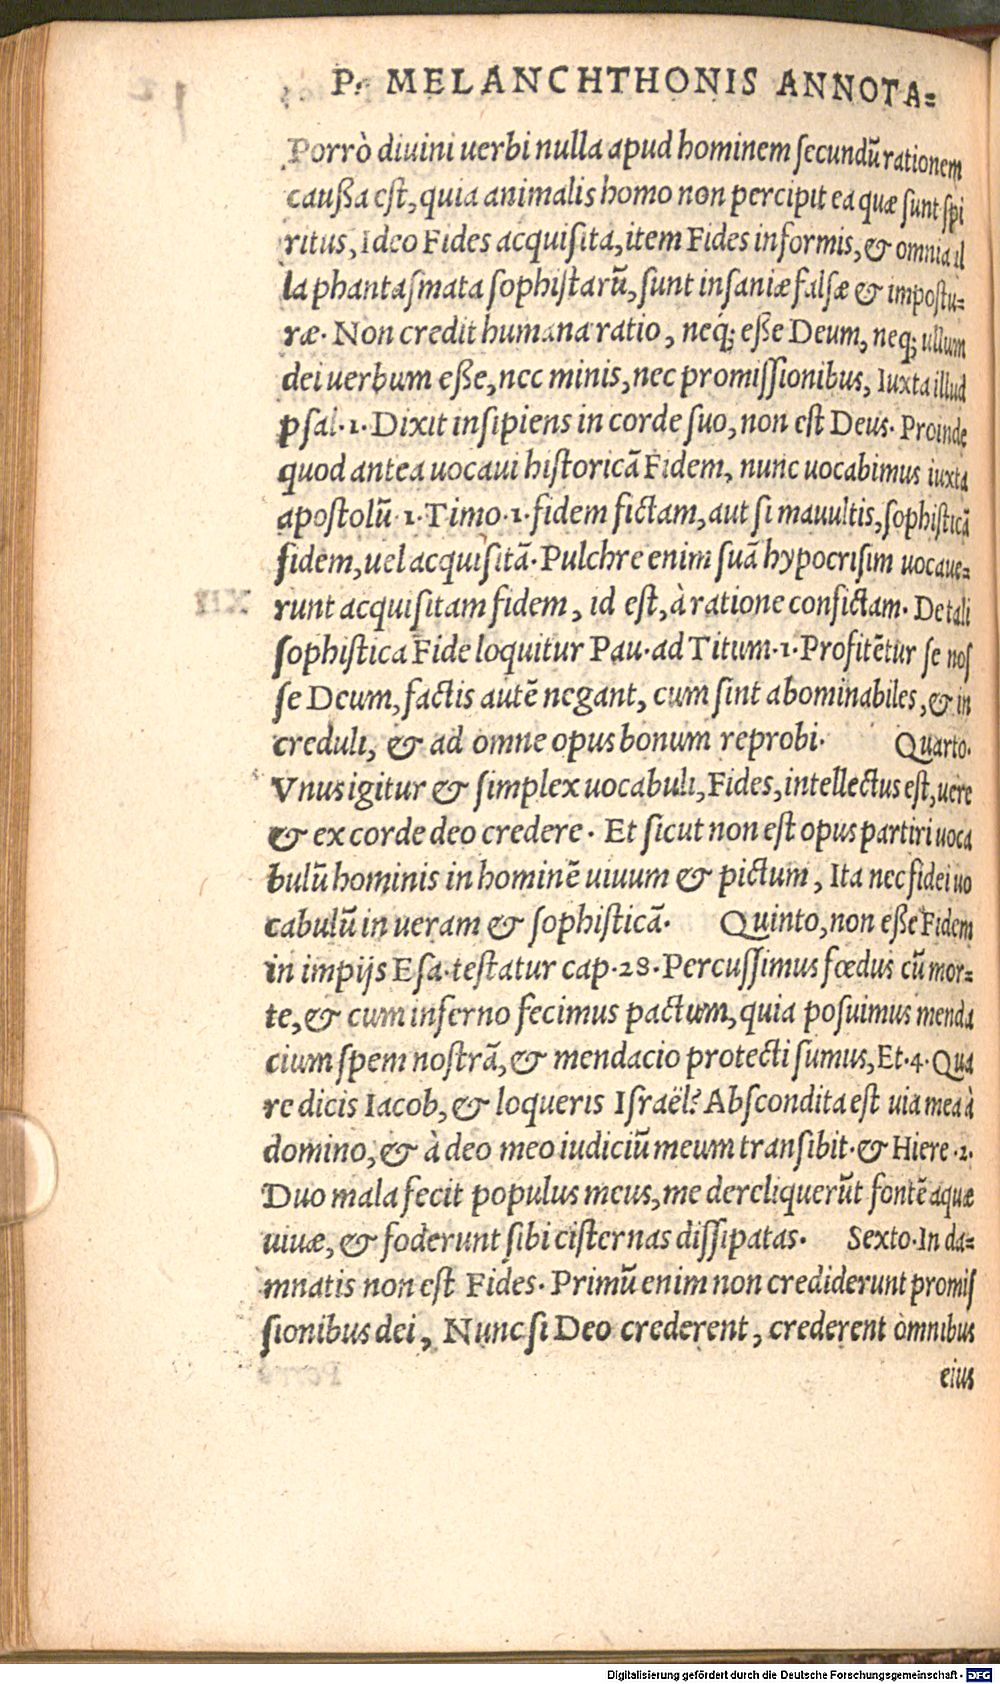 P. MELANCHTHONIS ANNOTA=
Porrò diuini uerbi nulla apud hominem ſecundũ rationem
cauſſa eſt, quia animalis homo non percipit ea quæ ſunt ſpi
ritus, Ideo Fides acquiſita, item Fides informis, & omnia il
la phantaſmata ſophiſtarũ, ſunt inſaniæ falſæ & impoſtu=
ræ. Non credit humana ratio, neq; eſſe Deum, neq; ullum
dei uerbum eſſe, nec minis, nec promiſſionibus, Iuxta illud
pſal. 1. Dixit inſipiens in corde ſuo, non eſt Deus. Proinde
quod antea uocaui hiſtoricã Fidem, nunc uocabimus iuxta
apoſtolũ 1. Timo. 1. fidem fictam, aut ſi mauultis, ſophiſticã
fidem, uel acquiſitã. Pulchre enim ſuã hypocriſim uocaue=
runt acquiſitam fidem, id eſt, à ratione confictam. De tali
ſophiſtica Fide loquitur Pau. ad Titum. 1. Profitẽtur ſe noſ
ſe Deum, factis autẽ negant, cum ſint abominabiles, & in
creduli, & ad omne opus bonum reprobi. Quarto.
Vnus igitur & ſimplex uocabuli, Fides, intellectus eſt, uere
& ex corde deo credere. Et ſicut non eſt opus partiri uoca
bulũ hominis in hominẽ uiuum & pictum, Ita nec fidei uo
cabulũ in ueram & ſophiſticã. Quinto, non eſſe Fidem
in impijs Eſa. teſtatur cap. 28. Percuſſimus fœdus cũ mor=
te, & cum inferno fecimus pactum, quia poſuimus menda
cium ſpem noſtrã, & mendacio protecti ſumus, Et. 4. Qua
re dicis Iacob, & loqueris Iſraël? Abſcondita eſt uia mea à
domino, & à deo meo iudiciũ meum tranſibit. & Hiere. 2.
Duo mala fecit populus meus, me dercliquerũt fontẽ aquæ
uiuæ, & foderunt ſibi ciſternas diſſipatas. Sexto. In da=
mnatis non eſt Fides. Primũ enim non crediderunt promiſ
ſionibus dei, Nunc ſi Deo crederent, crederent omnibus
eius
Digitalisierung gefördert durch die Deutsche Forschungsgemeinschaft - DFG